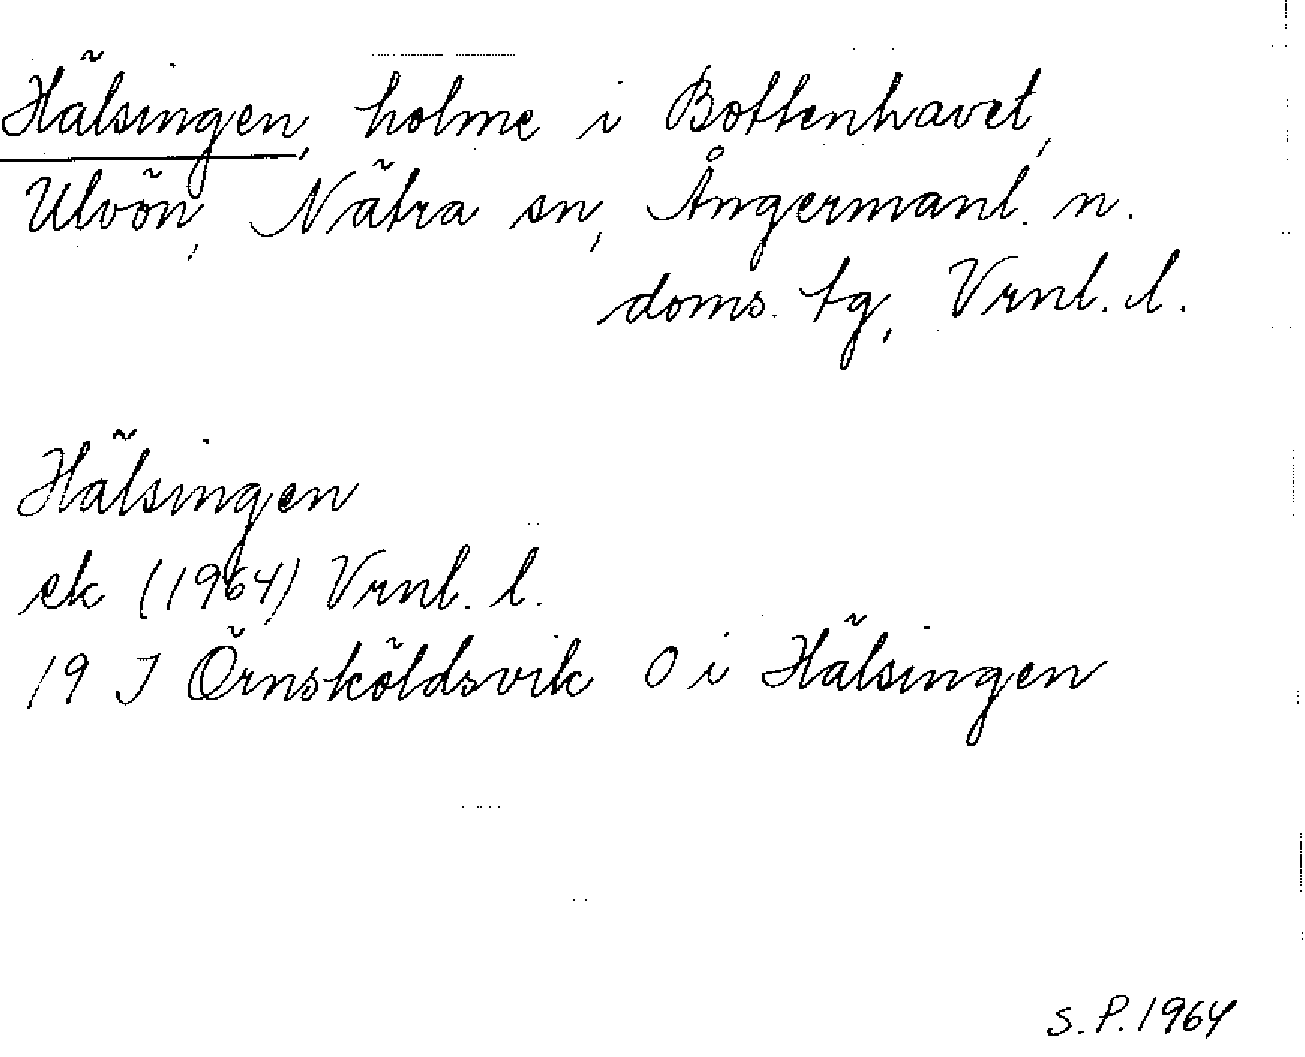 Hälsingen, holme i Bottenhavet,
Ulvön, Nätra sn, Ångermanl. n.
doms. tg, Vrnl. l.
Hälsingen
ek (1964) Vrnl. l.
19 J Örnsköldsvik 0 i Hälsingen
S.P.1964